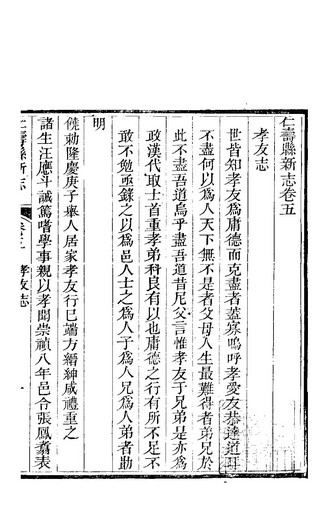 仁壽縣新志卷五
孝友志
世皆知孝友爲庸德而克盡者蓋寡嗚呼孝愛友恭達道耳
不盡何以爲人天下無不是者父母人生最難得者弟兄於
此不盡吾道烏乎盡吾道昔尼父言惟孝友于兄弟是亦爲
政漢代取士首重孝弟科良有以也庸德之行有所不足不
敢不勉亟錄之以爲邑人士之爲人子爲人兄爲人弟者勖
明
饒勅隆慶庚子舉人居家孝友行已端方縉紳咸禮重之
諸生汪應斗誠篤嗜學事親以孝聞崇禎八年邑令張鳳翥表
仁壽縣新志
卷之五
孝友志
一